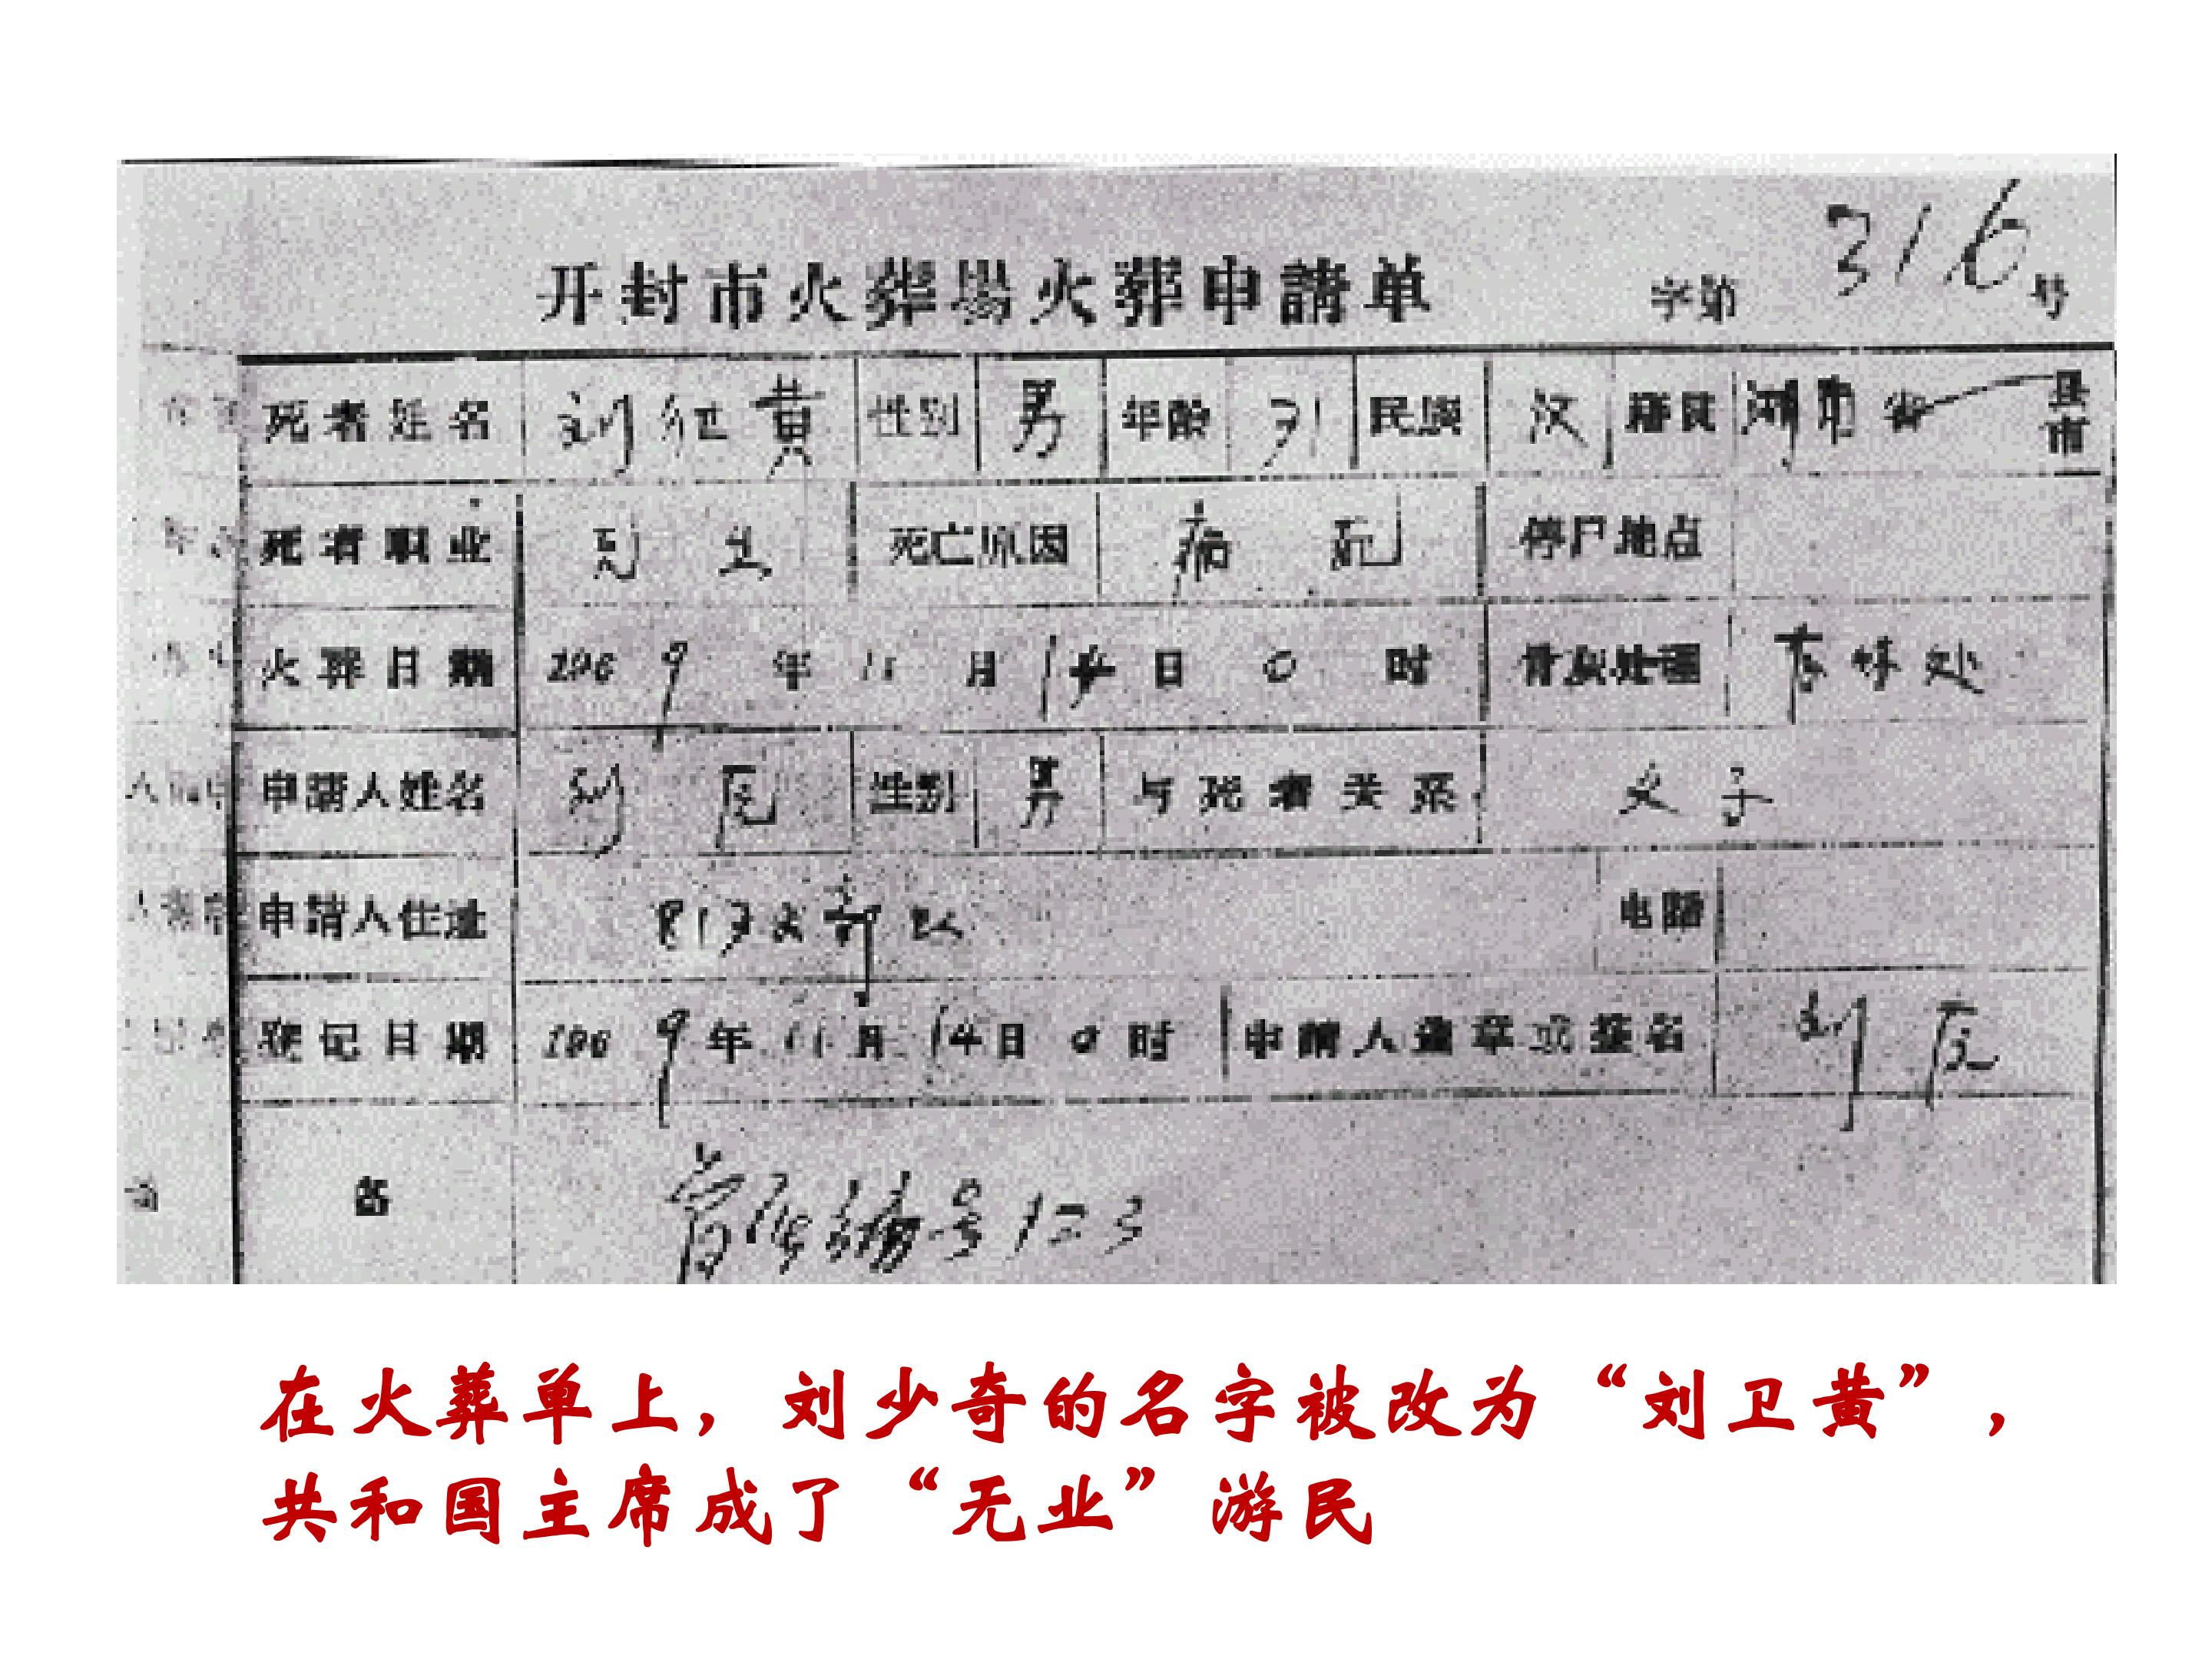 开封市火葬場火葬申請单 字第 316 号
死者姓名 刘 黄 性别 男 年龄 71 民族 汉 籍贯 湖南省 县市
死者职业 无业 死亡原因 病死 停尸地点
火葬日期 1969年11月14日0时 骨灰处理
申請人姓名 刘原 性别 男 与死者关系 父子
申請人住址 电話
登记日期 1969年11月14日0时 申請人盖章或签名 刘原
骨灰编号123
在火葬单上，刘少奇的名字被改为“刘卫黄”，
共和国主席成了“无业”游民